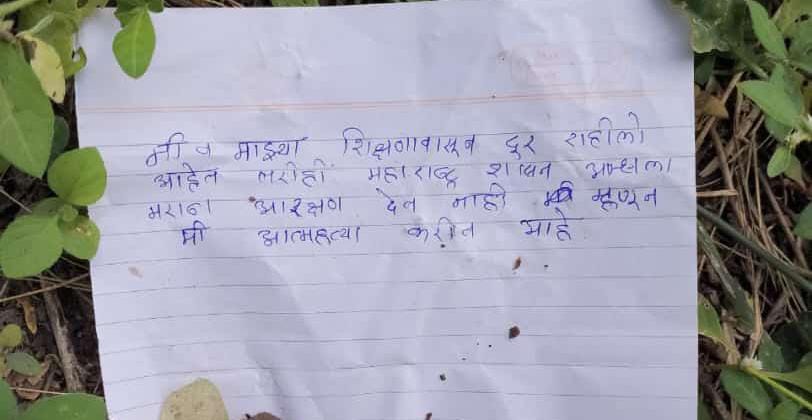 मी व माझ्या शिक्षणावासून दुर राहीलो
आहेत तरीही महाराष्ट्र शासन आम्हाला
मराठा आरक्षण देत नाही म्हणून
मी आत्महत्या करीत आहे.